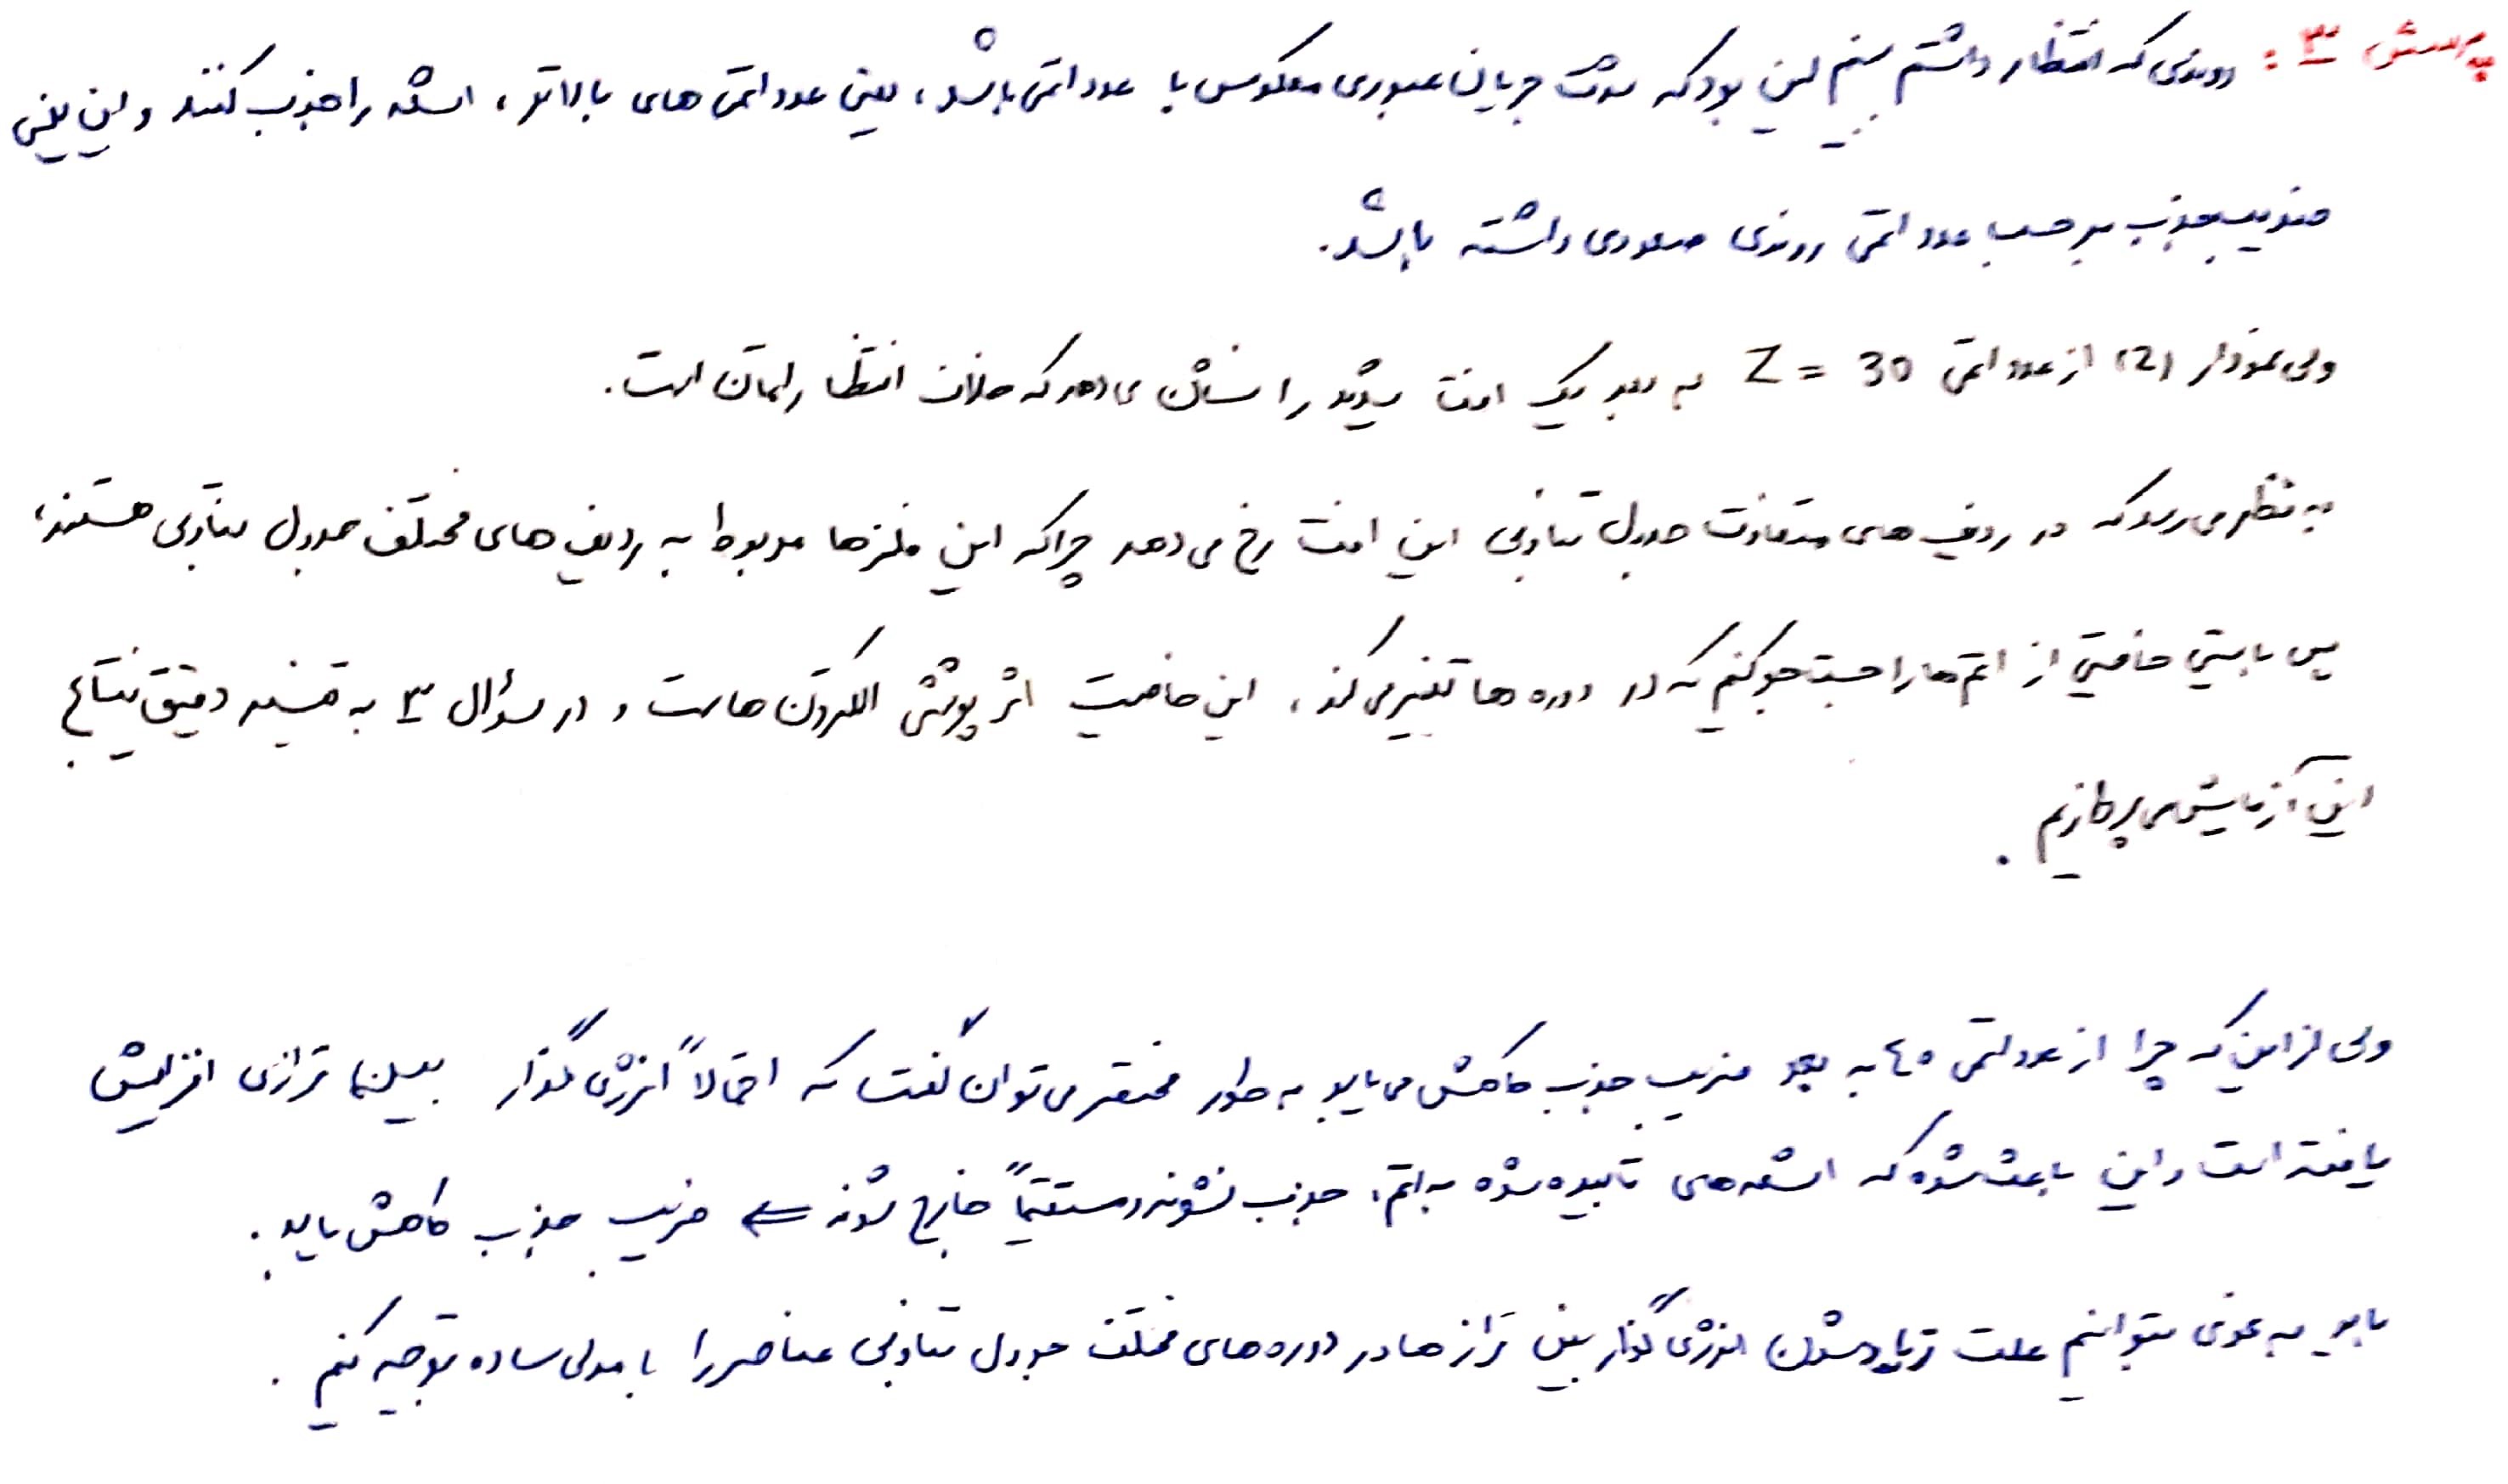 پرسش ۳: روندی که انتظار داشتم ببینم این بود که شدت جریان عبوری معکوس با عدد اتمی باشد، یعنی عدد اتمی های بالاتر، اشعه را جذب کنند و این یعنی
ضریب جذب برحسب عدد اتمی روندی صعودی داشته باشد.
ولی نمودار (2) از عدد اتمی Z = 30 به بعد یک افت شدید را نشان می دهد که خلاف انتظارمان است.
به نظر می رسد که در ردیف های متفاوت جدول تناوبی این افت رخ می دهد چراکه این فلزها مربوط به ردیف های مختلف جدول تناوبی هستند،
پس بایستی خاصیتی از اتم ها را جست جو کنیم که در دوره ها تغییر می کند، این خاصیت اثر پوششی الکترون هاست و در سؤال ۳ به تفسیر دقیق نتایج
این آزمایش می پردازیم.
ولی از این که چرا از عدد اتمی ۴۰ به بعد ضریب جذب کاهش می یابد به طور مختصر می توان گفت که احتمالاً انرژی گذار بین ترازی افزایش
یافته است و این باعث شده که اشعه های تابیده شده به اتم، جذب نشوند و مستقیماً خارج شوند ⇐ ضریب جذب کاهش یابد.
باید به نحوی بتوانیم علت زیاد شدن انرژی گذار بین ترازها در دوره های مختلف جدول تناوبی عناصر را با مدلی ساده توجیه کنیم.